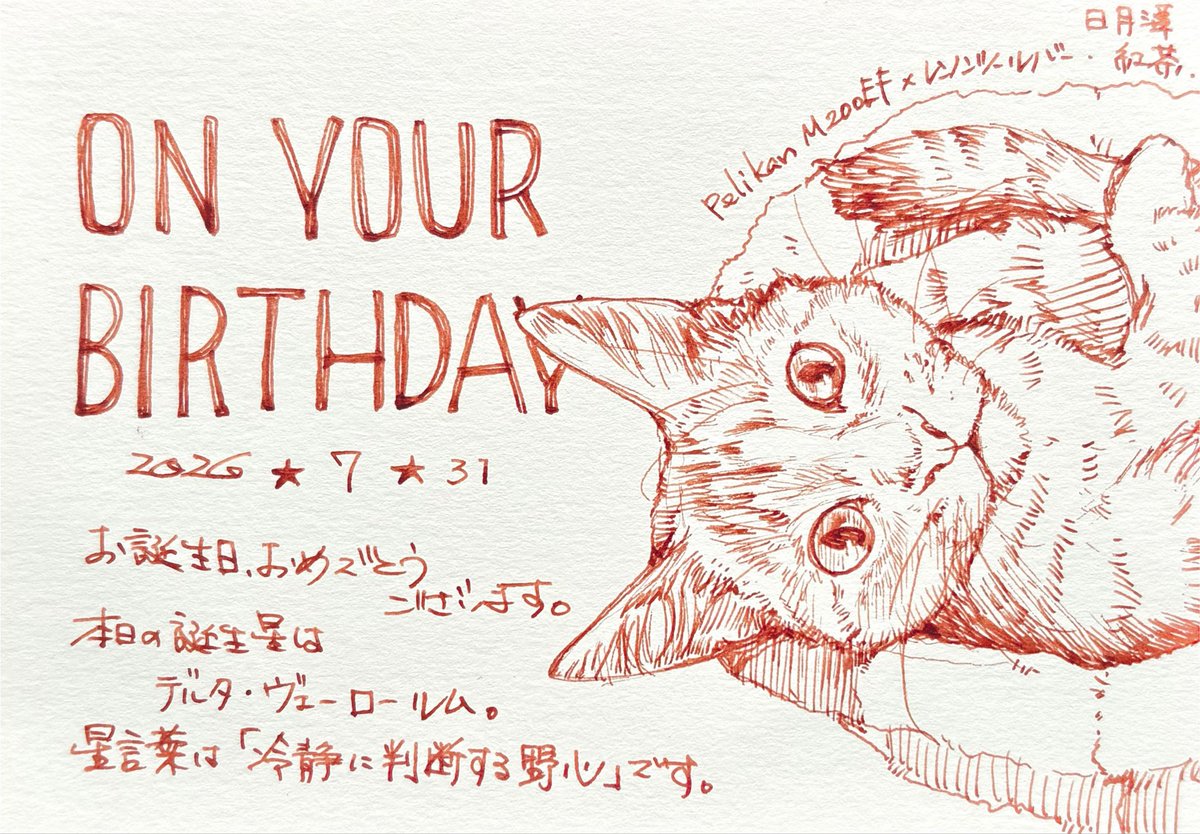 ON YOUR
BIRTHDAY
2026 ★ 7 ★ 31
お誕生日、おめでとう
ございます。
本日の誕生星は
デルタ・ヴェーロールム。
星言葉は「冷静に判断する野心」です。
Pelikan M200EF × レンノンツールバー・
日月潭
紅茶.